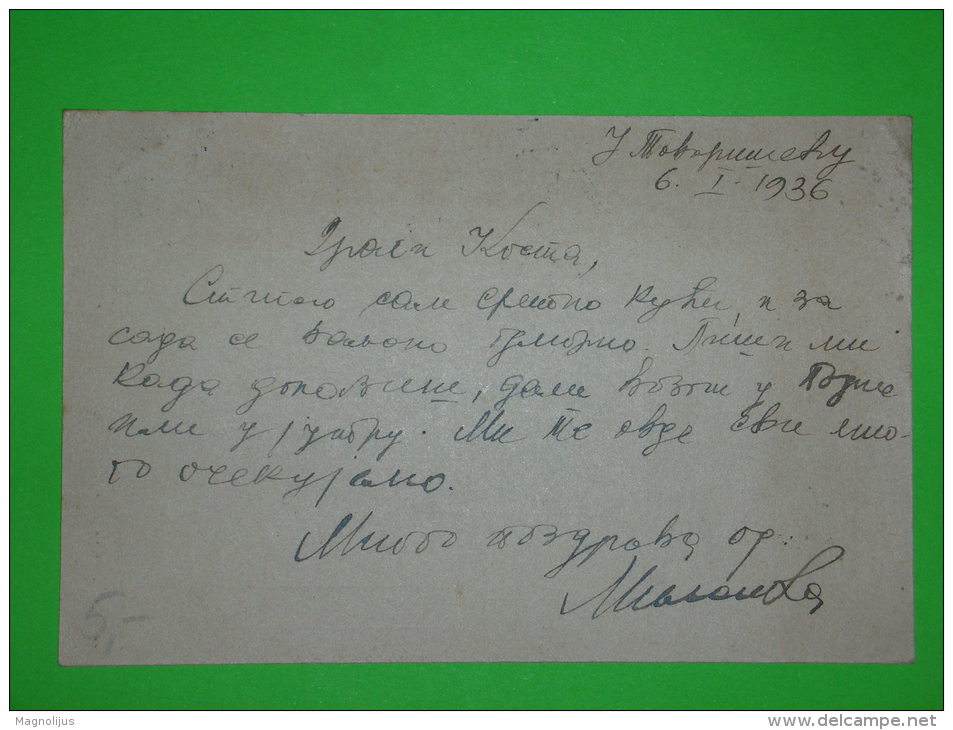 У Товаришеву
6. I. 1936
Драги Коста,
Стигао сам сретно кући и за
сада се ваљано одмарамо. Пиши ми
када долазиш, дали возом у
или у јутру. Ми те овде сви мно-
го очекујемо.
Много поздрава од:
5,-
Magnolijus
www.delcampe.net